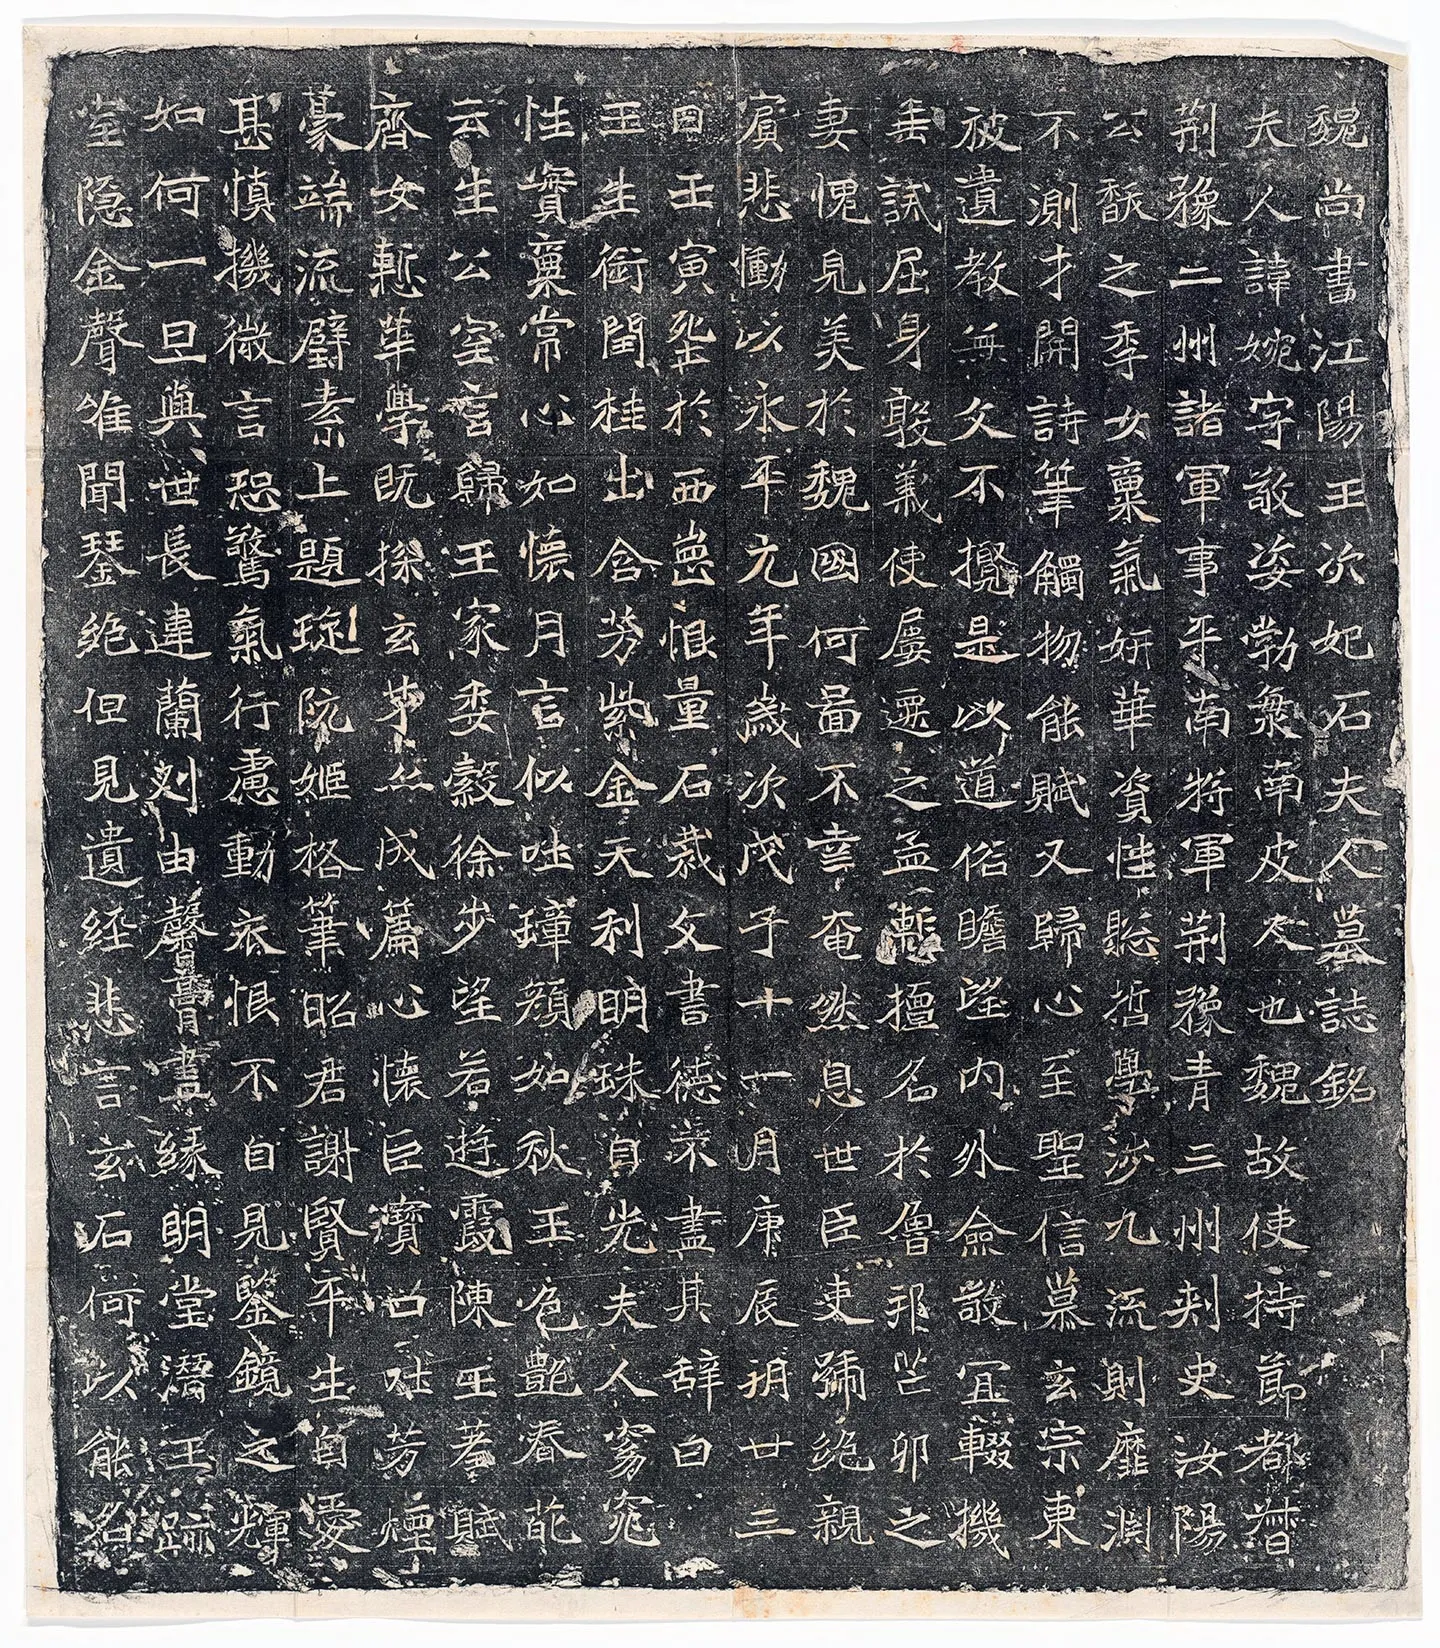 魏尚書江陽王次妃石夫人墓誌銘
夫人諱婉字敬姿勃海南皮人也魏故使持節都督
荊豫二州諸軍事平南將軍荊豫青三州刺史汝陽
公馛之季女稟氣妍華資性聰哲學涉九流則靡淵
不測才開詩筆觸物能賦又歸心至聖信慕玄宗東
被遺教無文不攬是以道俗瞻望內外僉敬宜輟機
垂誡屈身敦義使屢遷之孟慙擅名於魯邦芒卯之
妻愧見美於魏國何啚不幸奄然息世臣吏號絕親
賓悲慟以永平元年歲次戊子十一月庚辰朔廿三
日壬寅塟於西崗恨量石裁文書德未盡其辭曰
玉生銜閏桂出含芳紫金天利明珠自光夫人窈窕
性實稟常心如懷月言似吐璋顏如秋玉色艷春葩
云生公室言歸王家委縠徐步望若遊霞陳王羞賦
齊女慙華學既探玄才亦成篇心懷巨寶口吐芳煙
豪端流璧素上題琁阮姬格筆昭君謝賢平生自愛
甚慎機微言恐驚氣行慮動衣恨不自見鑒鏡之輝
如何一旦與世長違蘭刈由馨膏盡緣明堂潛玉跡
室隱金聲唯聞琴絕但見遺經悲言玄石何以能名